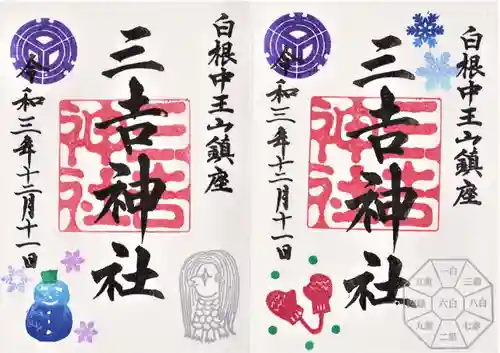 白根中王山鎮座
三吉神社
三吉神社
令和三年十二月十一日
一白
三碧
八白
六白
七赤
二黒
九紫
白根中王山鎮座
三吉神社
三吉神社
令和三年十二月十一日